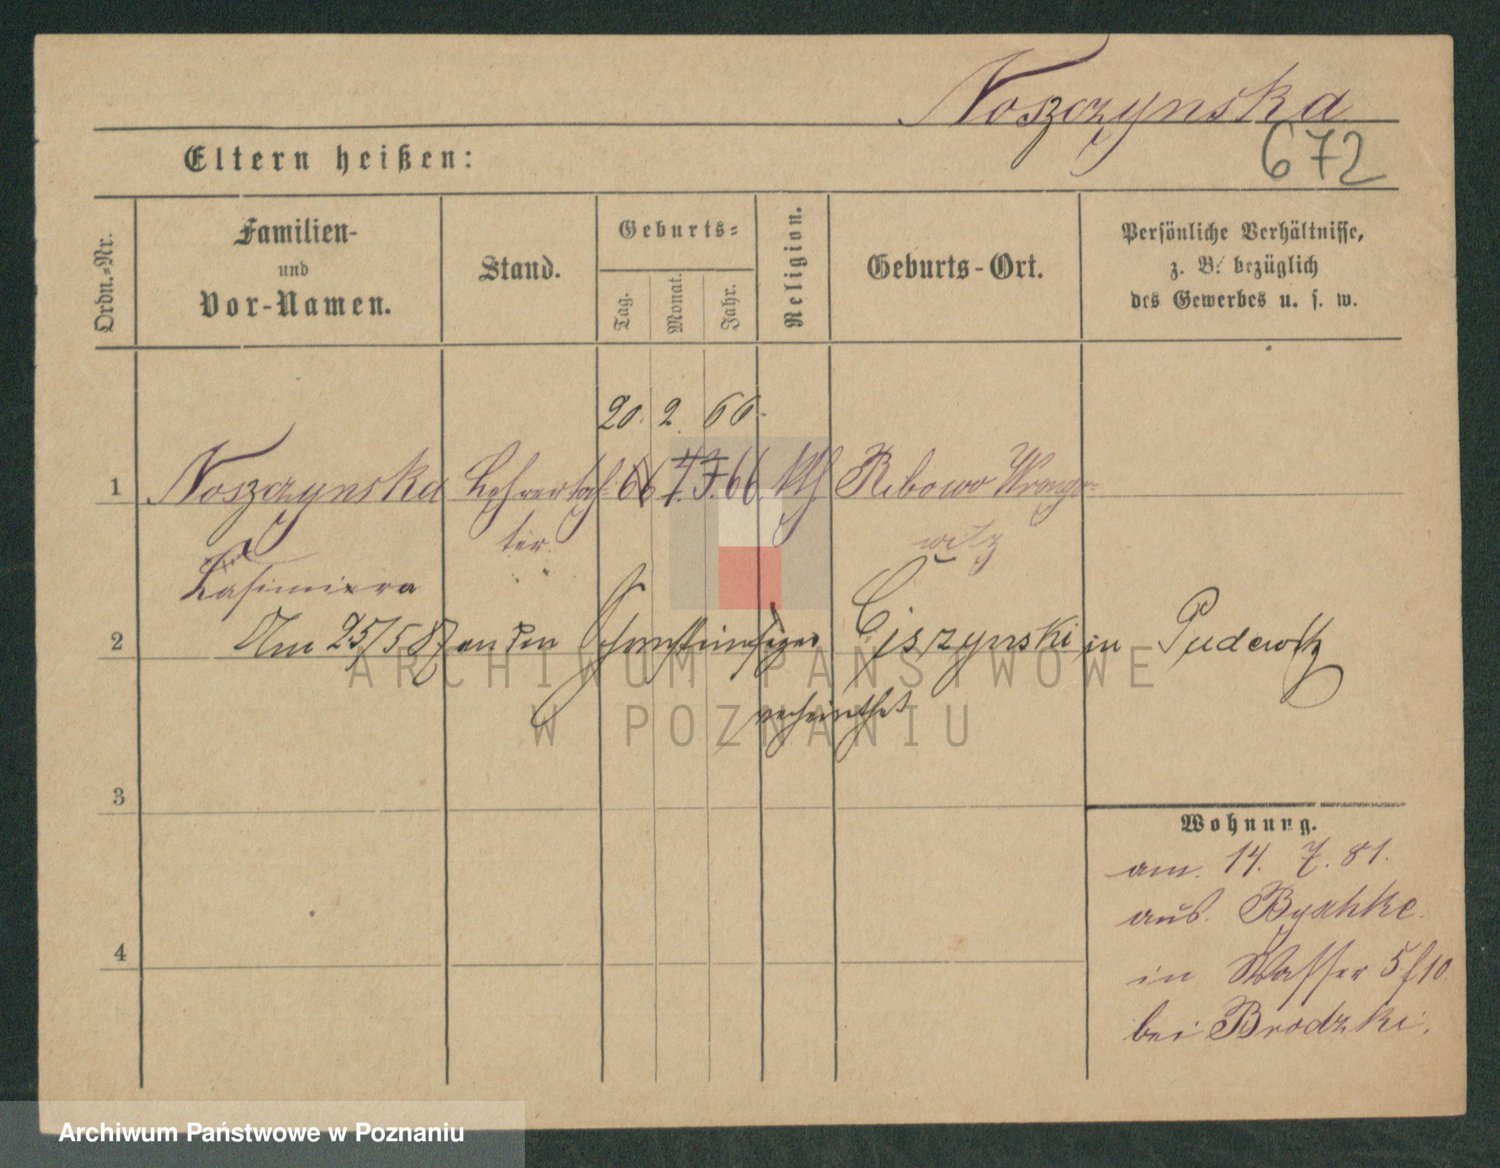 Noszczynska
672
Eltern heißen:
Ordn.-Nr.
Familien-
und
Vor-Namen.
Stand.
Geburts-
Tag.
Monat.
Jahr.
Religion.
Geburts-Ort.
Persönliche Verhältnisse,
z. B. bezüglich
des Gewerbes u. s. w.
20. 2. 66.
1 Noszczynska Lehrertoch- 66 kth Rebowo Wrongro-
ter witz
Kasimiera
2 Am 25/5 87 an den Schornsteinfeger Ciszynski in Pudewitz
verheirathet
3
4
Wohnung.
am. 14. 7. 81.
aus.
in Wasser 5 f 10.
bei Brodzki.
ARCHIWUM PAŃSTWOWE
W POZNANIU
Archiwum Państwowe w Poznaniu